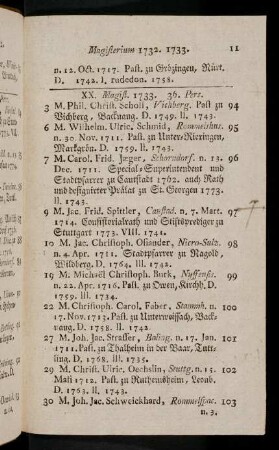 Magisterium 1732. 1733. 11
n. 12. Oct. 1717. Past. zu Grözingen, Nürt.
D. 1742. I. rudedon. 1758.
XX. Magist. 1733. 36. Pers.
3 M. Phil. Christ. Scholl, Vichberg. Past. zu 94
Vichberg, Backnang. D. 1749. II. 1743.
6 M. Wilhelm. Ulric. Schmid, Rommelshus. 95
n. 30. Nov. 1711. Past. zu Unter-Riexingen,
Markgrön. D. 1759. II. 1743.
7 M. Carol. Frid. Jæger, Schorndorf. n. 13. 96
Dec. 1711. Special-Superintendent und
Stadtpfarrer zu Cantstadt 1762. auch Rath
und designirter Prälat zu St. Georgen 1773.
II. 1743.
9 M. Jac. Frid. Spittler, Canstad. n. 7. Mart. 97
1714. Consistorialrath und Stiftsprediger zu
Stuttgart 1773. VIII. 1741.
10 M. Jac. Christoph. Osiander, Nicro-Sulz. 98
n. 4. Apr. 1711. Stadtpfarrer zu Nagold,
Wildberg. D. 1764. III. 1742.
19 M. Michaël Christoph. Burk, Nyffensis. 99
n. 22. Apr. 1716. Past. zu Owen, Kirchh. D.
1759. III. 1734.
22 M. Christoph. Carol. Faber, Stamnh. n. 100
17. Nov. 1713. Past. zu Unterweissach, Back-
nang. D. 1758. II. 1742.
27 M. Joh. Jac. Strasser, Baling. n. 17. Jan. 101
1711. Past. zu Thalheim in der Baar, Tutt-
ling. D. 1768. III. 1735.
29 M. Christ. Ulric. Oechslin, Stuttg. n. 15. 102
Maii 1712. Past. zu Ruthemsheim, Leonb.
D. 1763. II. 1742.
30 M. Joh. Jac. Schweickhard, Rommelshac. 103
n. 3.